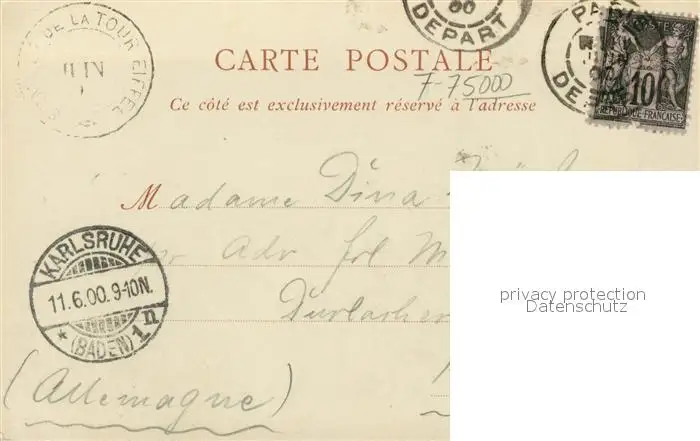 DE LA TOUR EIFFEL
JUIN
00
DEPART
PARIS
DE
10
REPUBLIQUE FRANÇAISE
CARTE POSTALE
F-75000
Ce côté est exclusivement réservé à l'adresse
Madame Dina
Adr frl M
Durlacher
(Allemagne)
KARLSRUHE
11.6.00.9-10N.
* (BADEN) 1n
privacy protection
Datenschutz